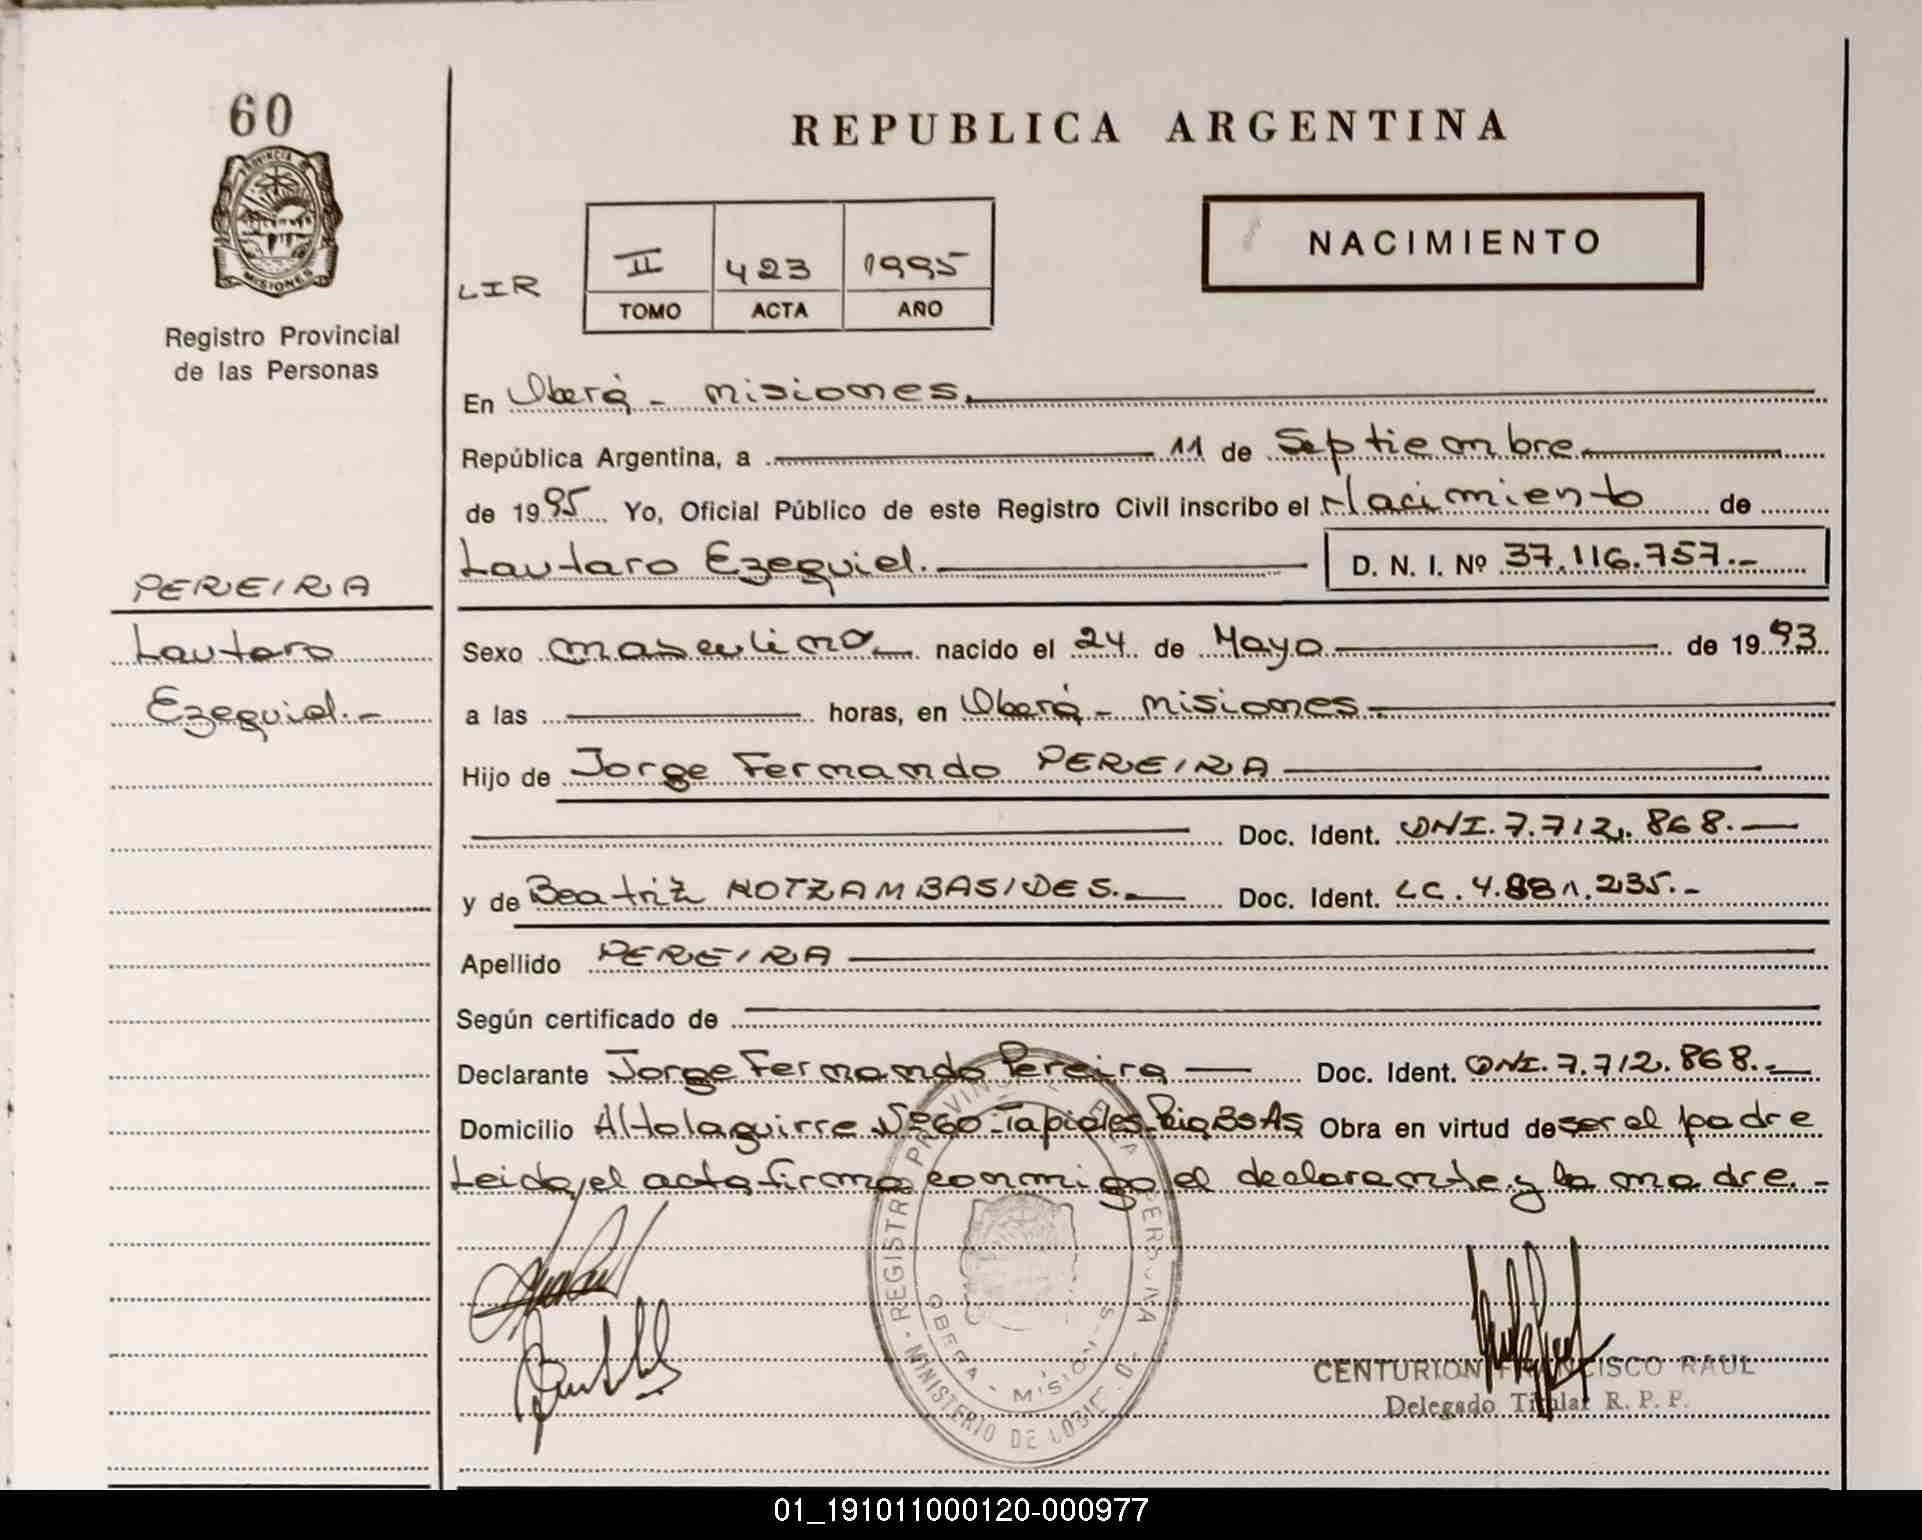 60
PROVINCIA DE
MISIONES
Registro Provincial
de las Personas
PEREIRA
Lautaro
Ezequiel.-
REPUBLICA ARGENTINA
LIR
II 423 1995
TOMO ACTA AÑO
NACIMIENTO
En Oberá - misiones.
República Argentina, a 11 de Septiembre
de 1995 Yo, Oficial Público de este Registro Civil inscribo el Nacimiento de
Lautaro Ezequiel. D. N. I. Nº 37.116.757.-
Sexo masculino nacido el 24 de Mayo de 1993
a las horas, en Oberá - misiones
Hijo de Jorge Fernando PEREIRA
Doc. Ident. DNI. 7.712.868.-
y de Beatriz KOTZAMBASIDES.- Doc. Ident. LC. 4.881.235.-
Apellido PEREIRA
Según certificado de
Declarante Jorge Fernando Pereira - Doc. Ident. DNI. 7.712.868.-
Domicilio Altolaguirre Nº 60 - Tapiales - BsAs Obra en virtud de ser el padre
Leida, el acta firma conmigo el declarante y la madre.-
REGISTRO PROVINCIAL
OBERA - MISIONES
MINISTERIO DE
CENTURION FRANCISCO RAUL
Delegado Titular R. P. P.
01_191011000120-000977